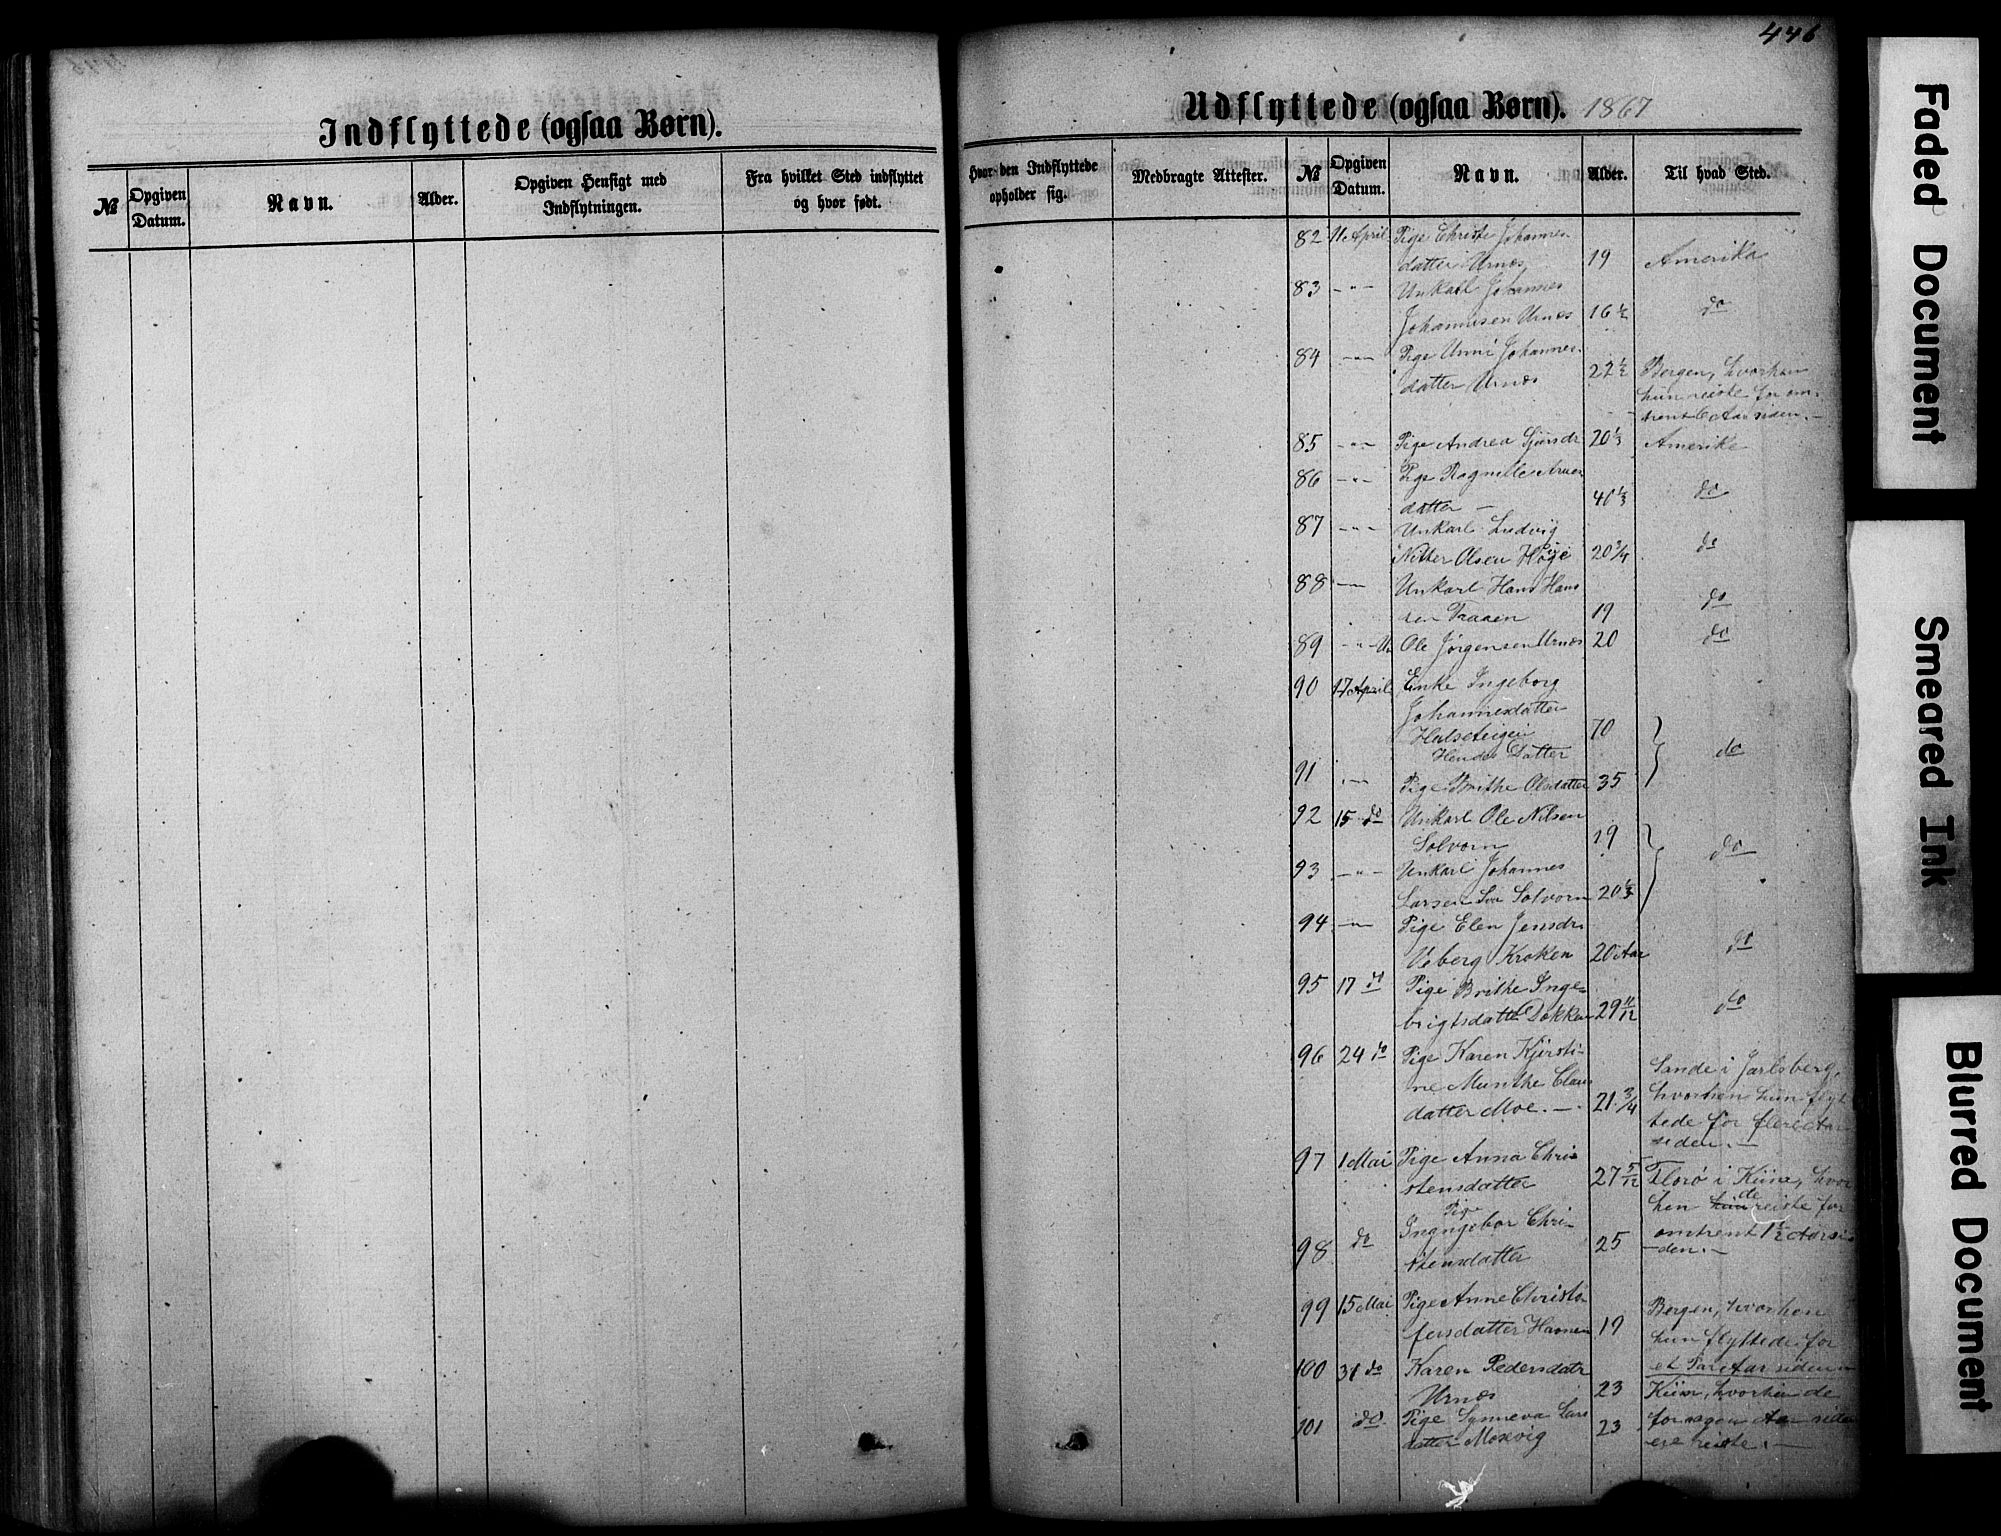 446
Indflyttede (ogsaa Børn).
№
Opgiven Datum.
Navn.
Alder.
Opgiven Hensigt med Indflytningen.
Fra hvilket Sted indflyttet og hvor født.
Udflyttede (ogsaa Børn). 1867
Hvor den Indflyttede opholder sig.
Medbragte Attester.
№
Opgiven Datum.
Navn.
Alder.
Til hvad Sted.
82 11 April Pige Christi Johannes-
datter Urnes 19 Amerika
83 -"- Unkarl Johannes
Johannesen Urnes 16 1/2 do
84 -"- Pige Unni Johannes-
datter Urnes 22 1/2 Bergen, hvorhen
hun reiste for om-
trent 6 Aar siden.-
85 -"- Pige Andrea 20 1/3 Amerika
86 -"- Pige Ragnille
datter - 40 1/3 do
87 -"- Unkarl Ludvig
Nitter Olsen Høge 20 3/4 do
88 -"- Unkarl Hans Hans
sen 19 do
89 -"- Un Ole Jørgensen Urnes 20 do
90 17 April Enke Ingeborg
Johannesdatter
70
Hendes Datter do
91 -"- Pige Brithe Olsdatter 35
92 15 do Unkarl Ole Nilsen
Solvorn 19
93 -"- Unkarl Johannes do
Larsen Solvorn 20 1/3
94 -"- Pige Elen Jensdr
Veberg Kroken 20 Aar do
95 17 do Pige Brithe Inge-
brigtsdatter Døkken 29 11/12 do
96 24 do Pige Karen Kjirsti-
ne Munthe Claus
datter Moe.- 21 3/4
Sande i Jarlsberg,
hvorhen hun flyt
tede for flere Aar
siden.-
97 1 Mai Pige Anna Chri-
stensdatter 27 5/12 Florø i Kinn, hvor
Pige
hen hun de reiste for
98 do Ingngebor Chri-
stensdatter 25 omtrent 1 1/2 Aar si-
den.-
99 15 Mai Pige Anne Christo
fersdatter 19
Bergen, hvorhen
hun flyttede for
et Par Aar siden
100 31 do Karen Pedersdatr
Urnes 23 Kinn, hvorhen de
101 do. Pige Synneva Lars
datter Moxvig 23 for nogen Aar siden
ere reiste.-
Faded Document
Smeared Ink
Blurred Document